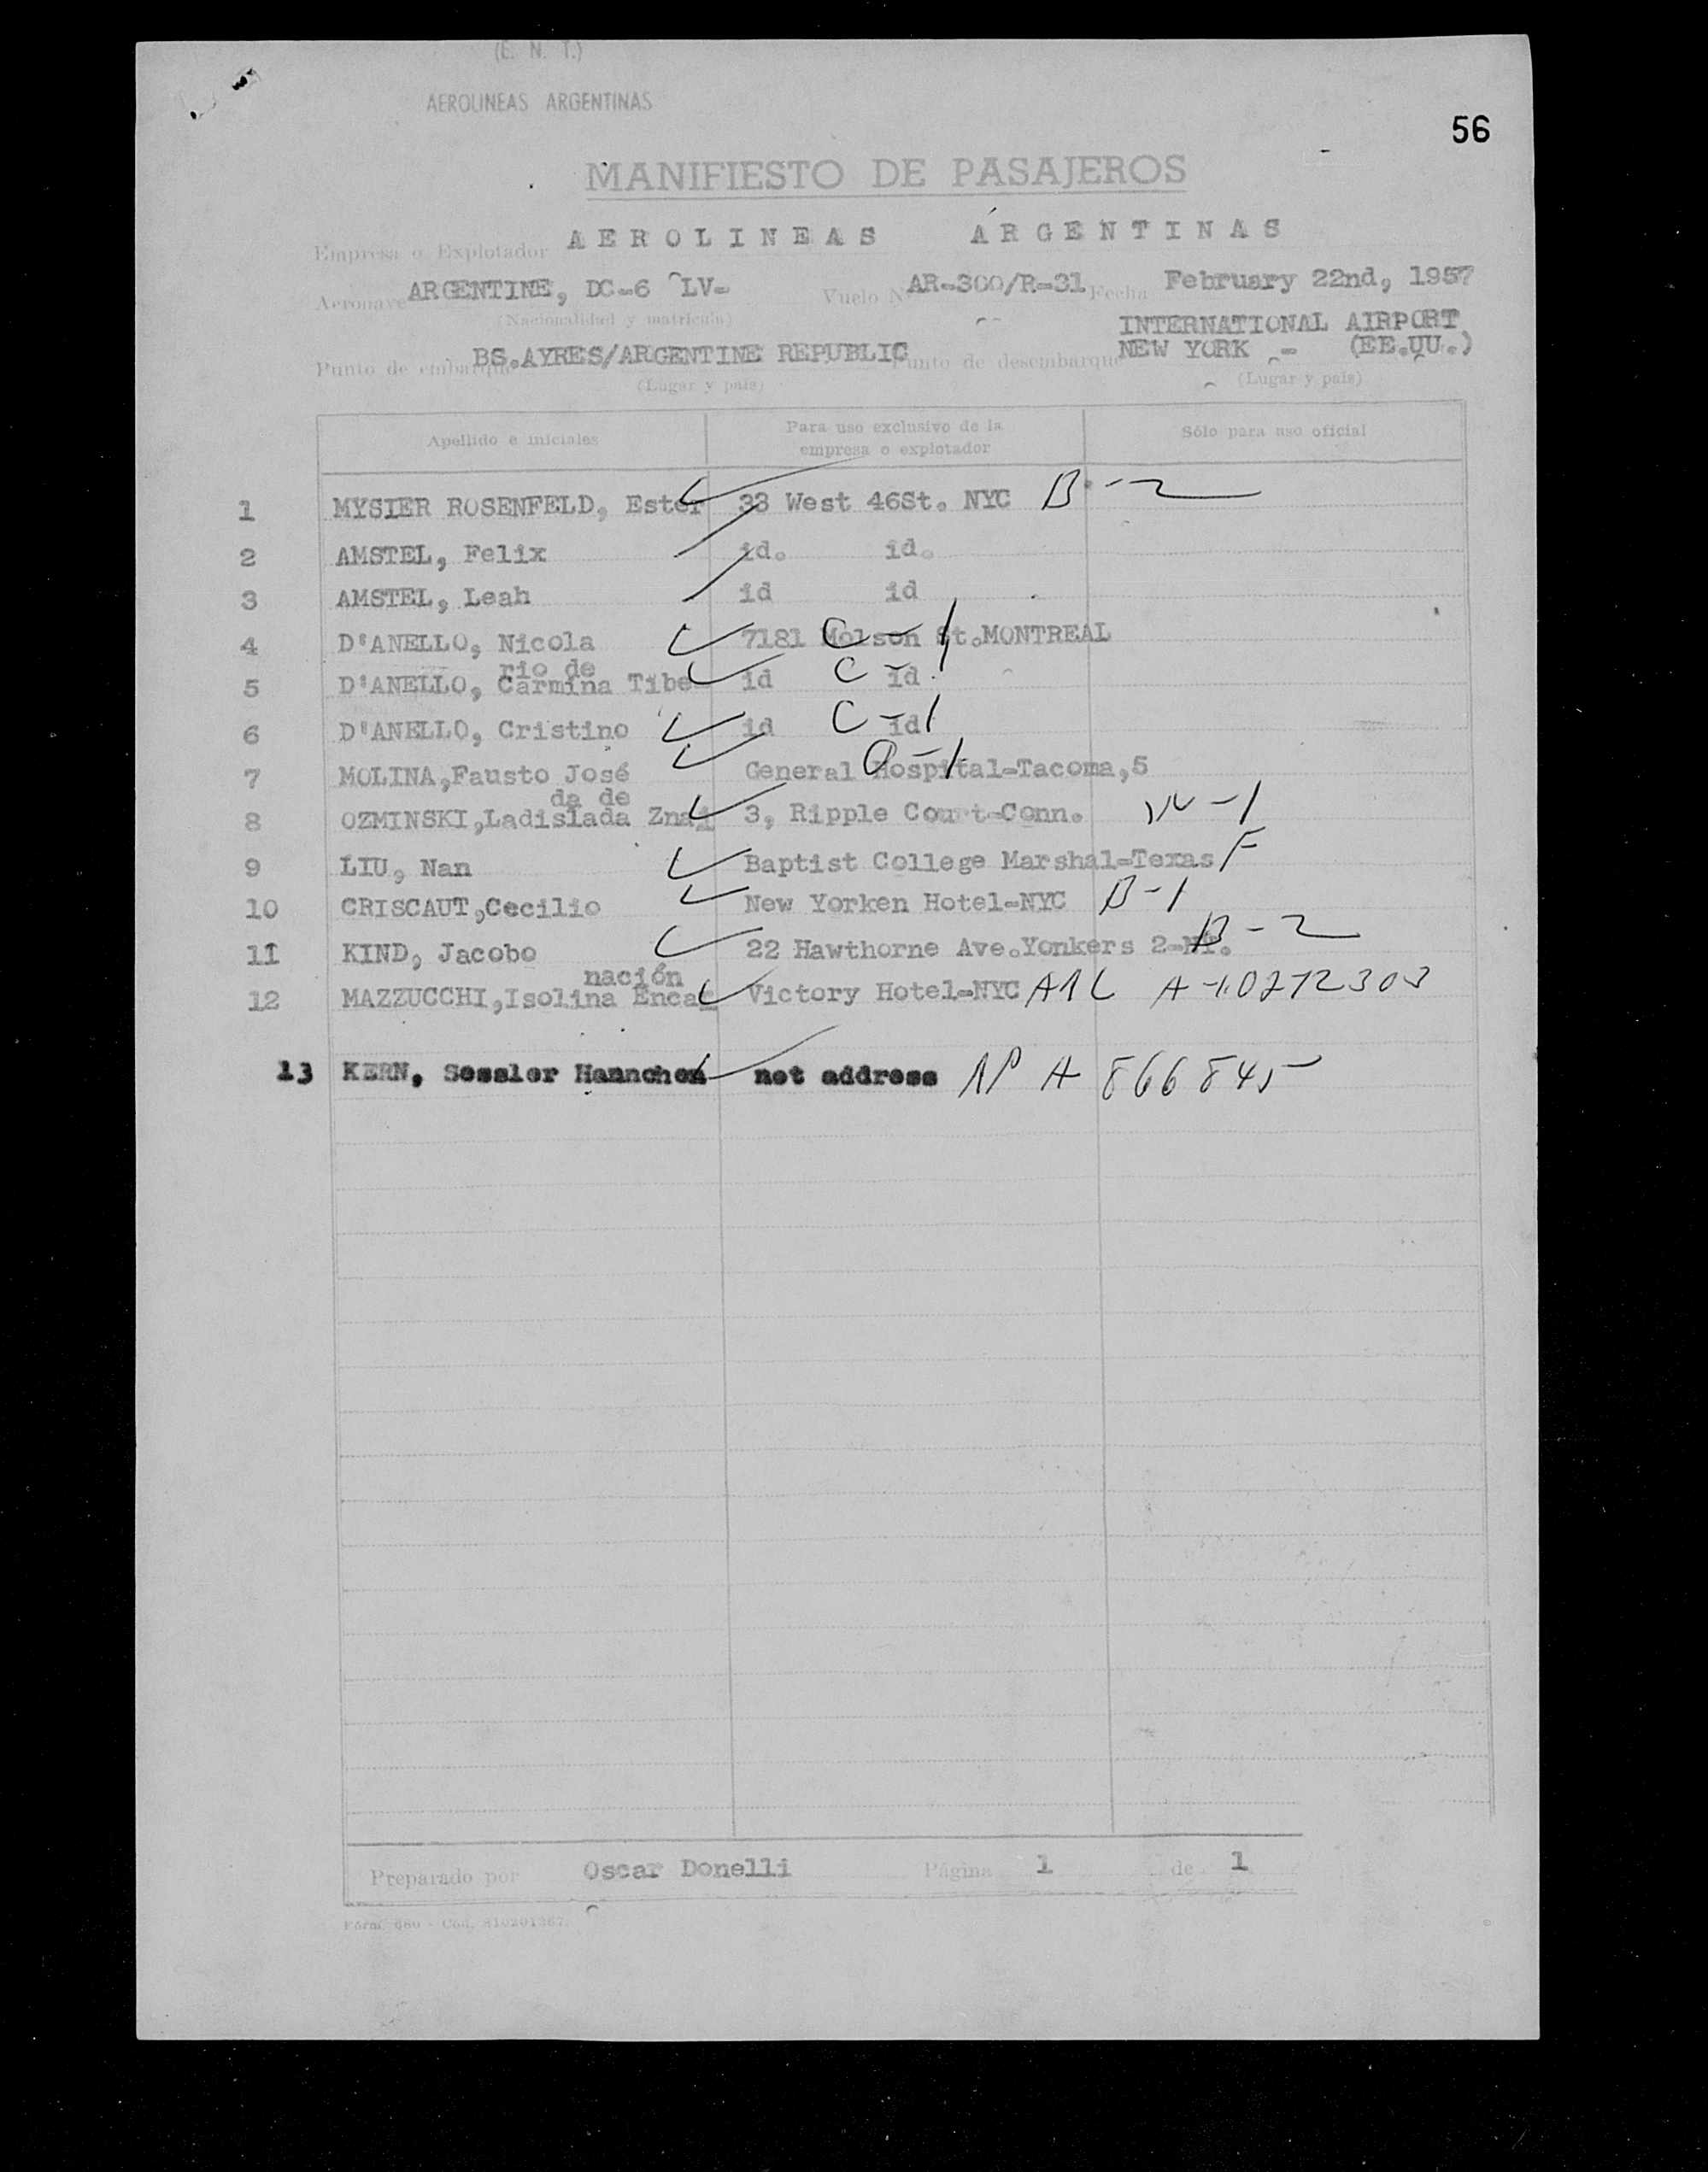 (E. N. T.)
AEROLINEAS ARGENTINAS
56
MANIFIESTO DE PASAJEROS
Empresa o Explotador AEROLINEAS ARGENTINAS
Aeronave ARGENTINE, DC-6 LV- Vuelo Nº AR-300/R-31 Fecha February 22nd, 1957
(Nacionalidad y matrícula)
INTERNATIONAL AIRPORT
Punto de embarque BS.AYRES/ARGENTINE REPUBLIC Punto de desembarque NEW YORK - (EE.UU.)
(Lugar y país) (Lugar y país)
Apellido e iniciales Para uso exclusivo de la empresa o explotador Sólo para uso oficial
1 MYSIER ROSENFELD, Ester 33 West 46St. NYC B-2
2 AMSTEL, Felix id. id.
3 AMSTEL, Leah id id
4 D'ANELLO, Nicola 7181 Molson St.MONTREAL C-1
rio de
5 D'ANELLO, Carmina Tibe- id id C-1
6 D'ANELLO, Cristino id id C-1
7 MOLINA,Fausto José General Hospital-Tacoma,5
da de
8 OZMINSKI,Ladislada Znai 3, Ripple Court-Conn.
9 LIU, Nan Baptist College Marshal-Texas F
10 CRISCAUT,Cecilio New Yorken Hotel-NYC B-1
11 KIND, Jacobo 22 Hawthorne Ave.Yonkers 2-NY. B-2
nación
12 MAZZUCCHI,Isolina Encar Victory Hotel-NYC
13 KERN, Sessler Hannchen not address A 866845
Preparado por Oscar Donelli Página 1 de 1